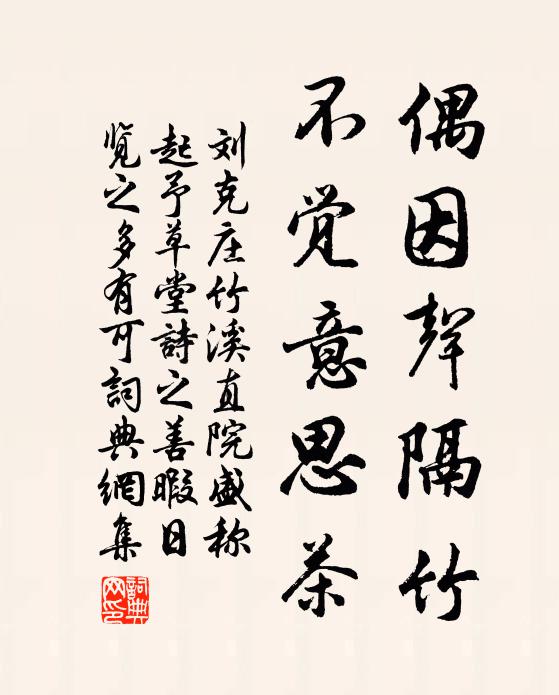 偶因聲隔竹
不觉意思茶
刘克庄竹溪直院盛称
起予草堂詩之善暇日
览之多有可詞典網集
詞典网印